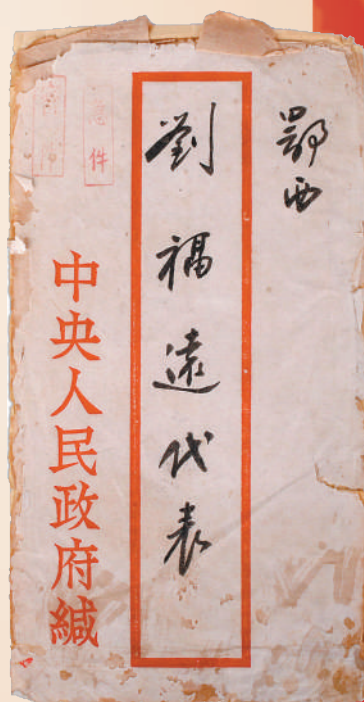 鄂西
劉福遠代表
中央人民政府緘
件